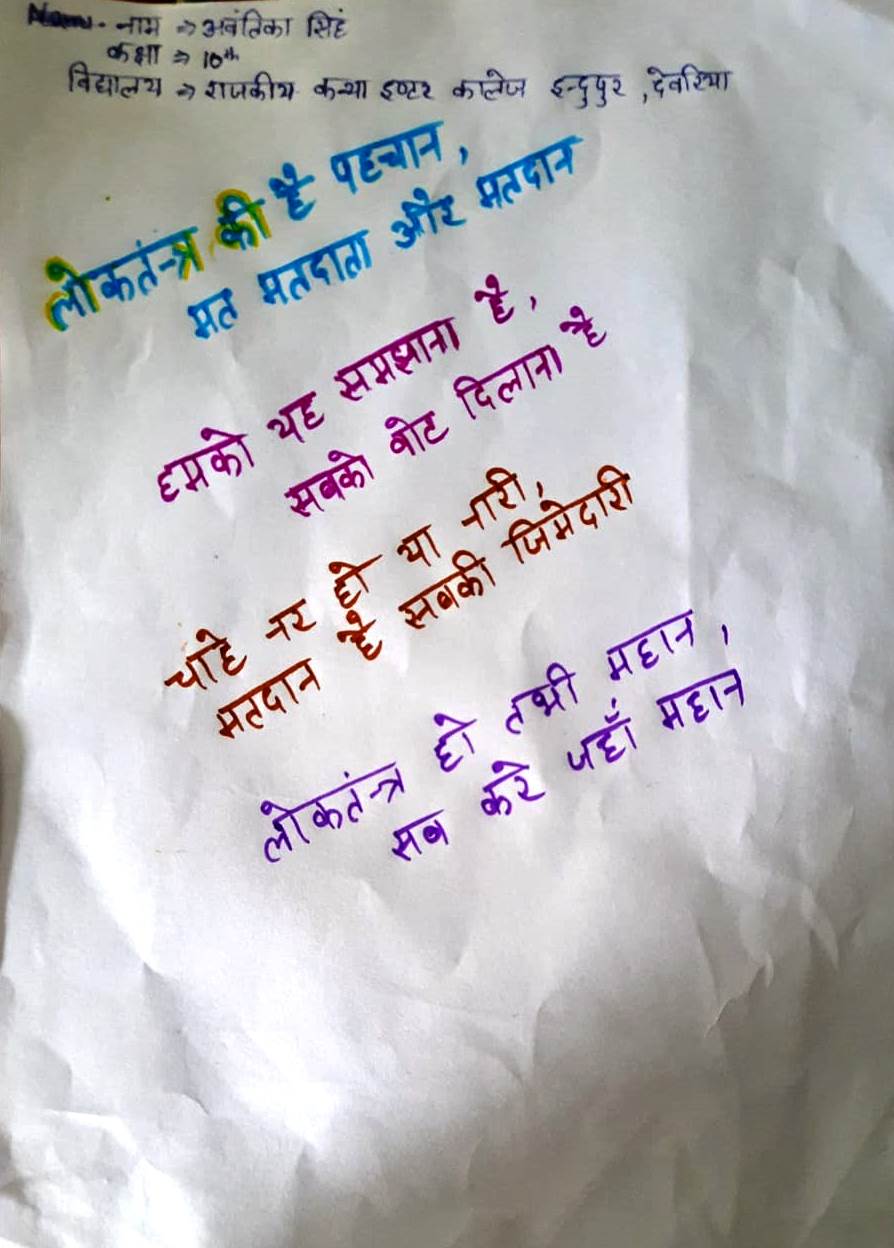 नाम ⇒ अवंतिका सिहं
कक्षा ⇒ 10th
विद्यालय ⇒ राजकीय कन्या इण्टर कालेज इन्दुपुर , देवरिया
लोकतंन्त्र की है पहचान ,
मत मतदाता और मतदान
हमको यह समझाना है ,
सबको वोट दिलाना है
चाहे नर हो या नारी ,
मतदान है सबकी जिमेदारी
लोकतंन्त्र हो तभी महान ,
सब करे जहाँ महान